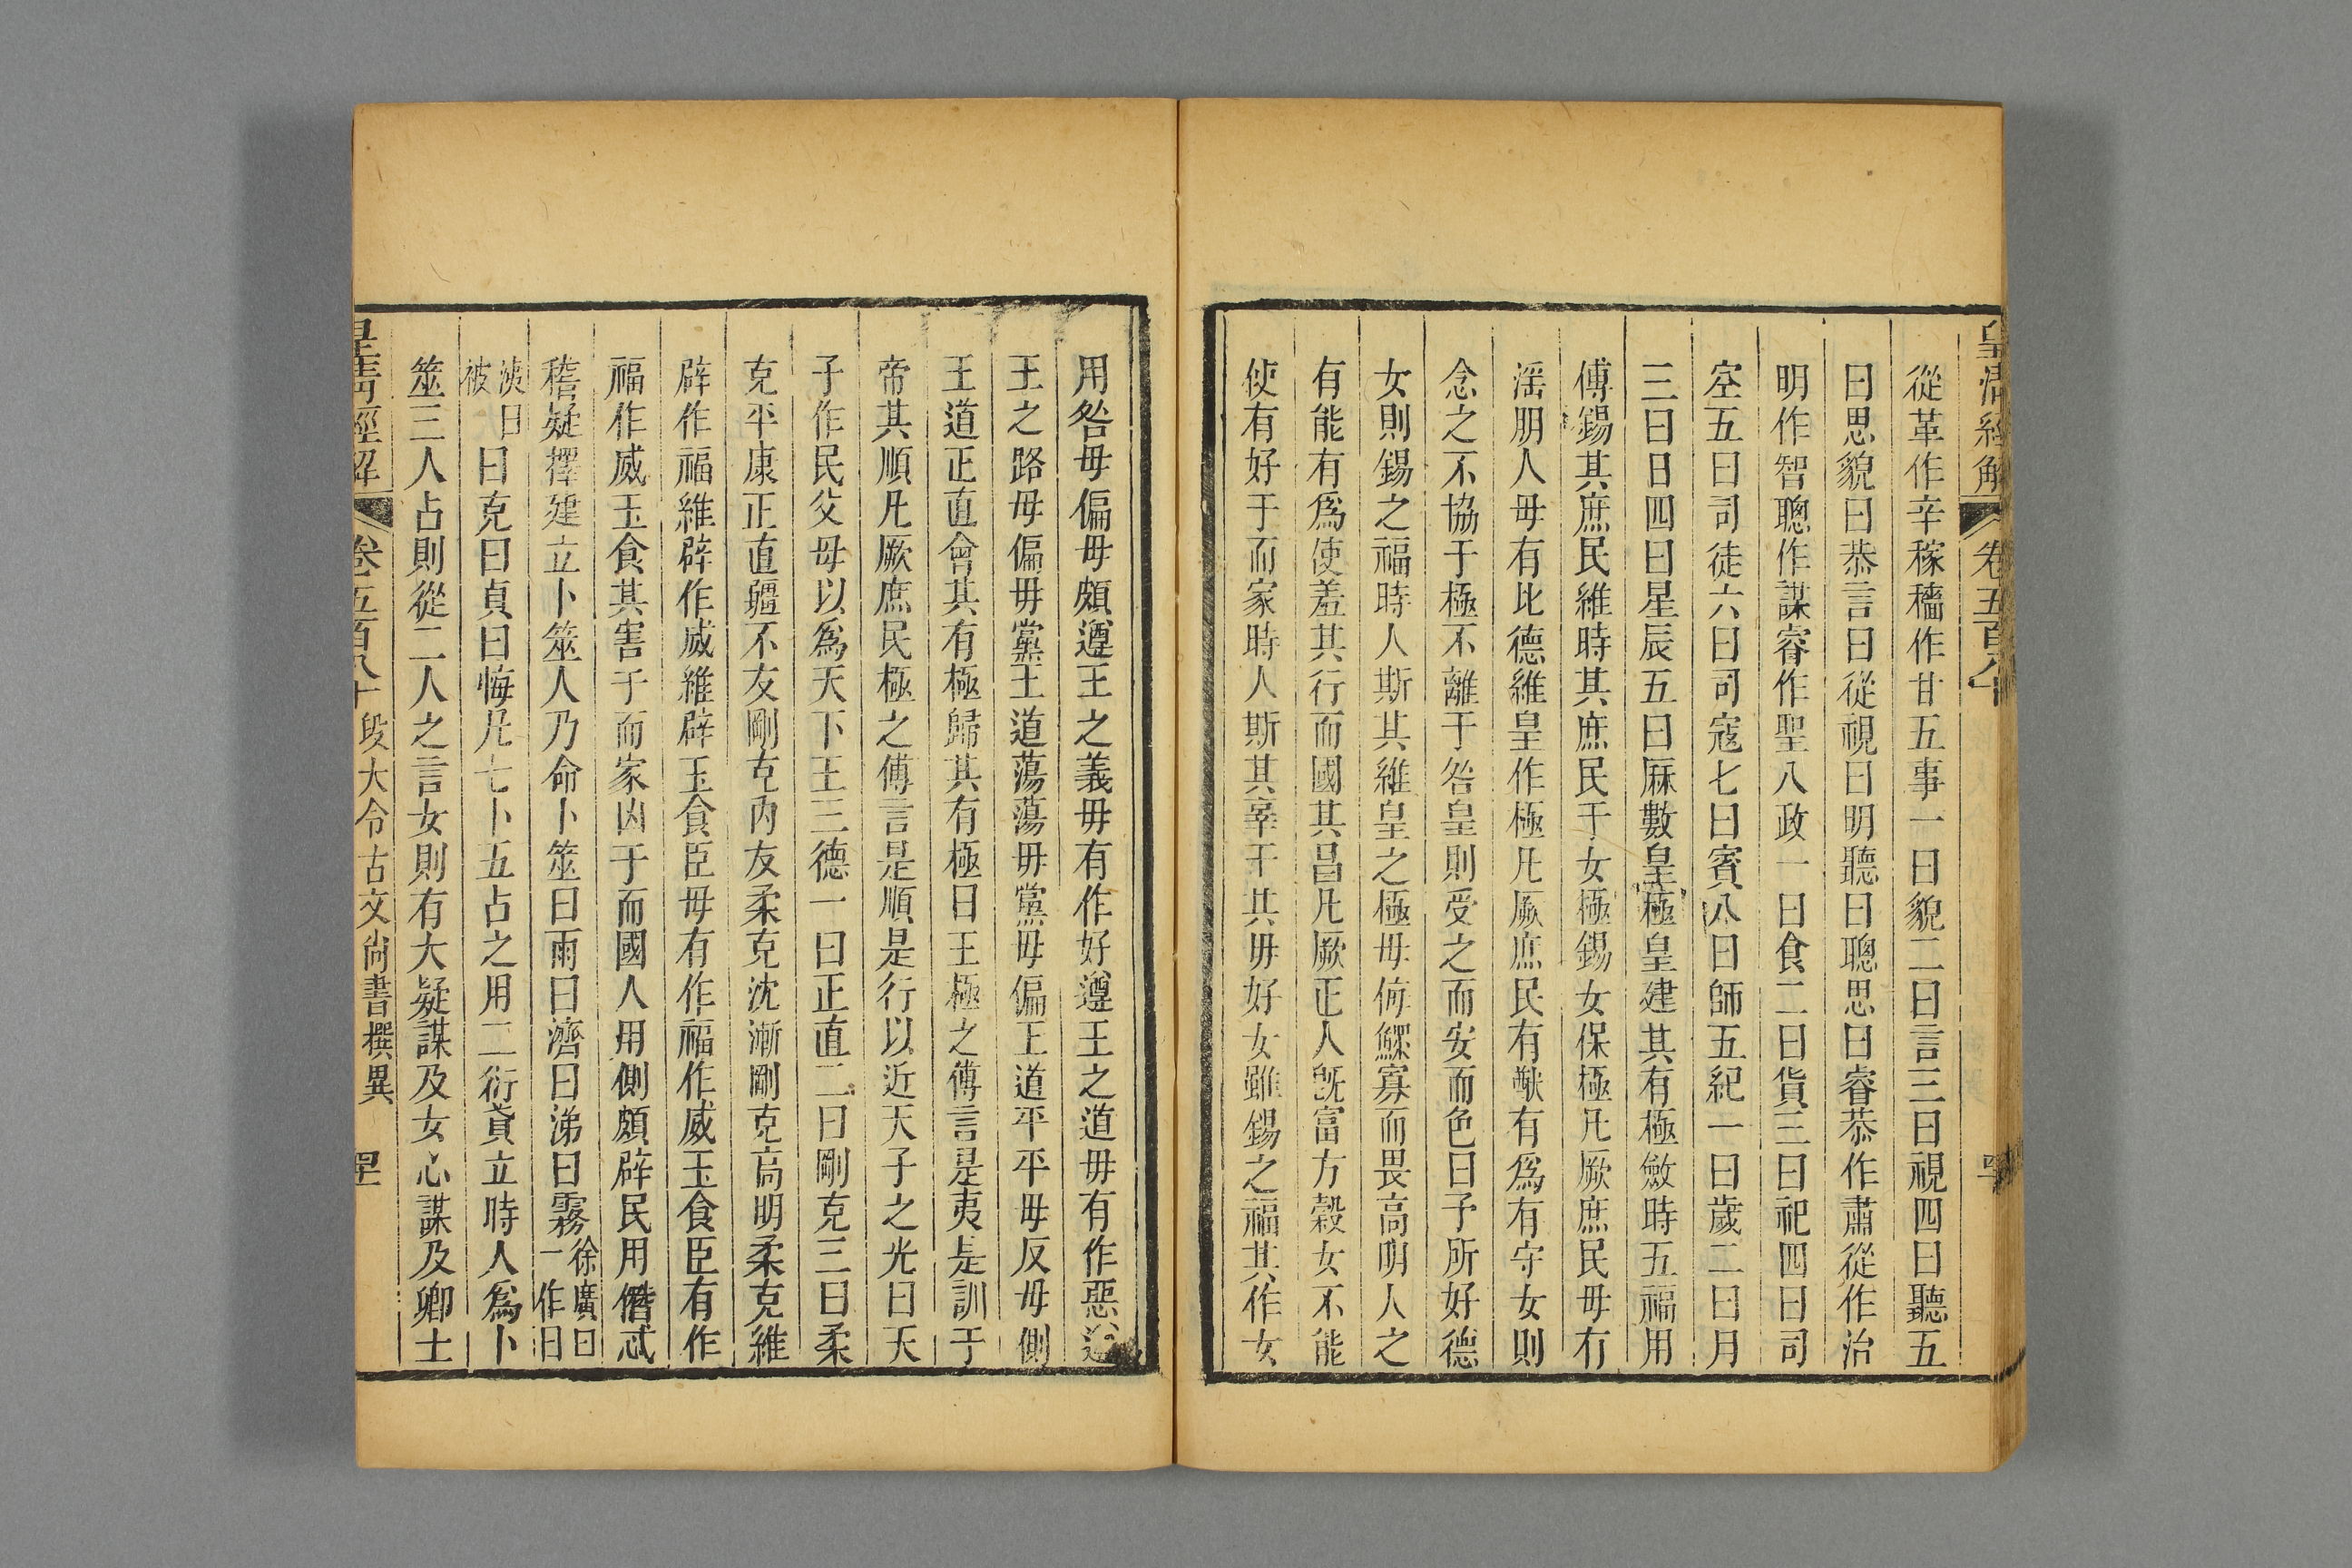 皇清經解 卷五百八十
從革作辛稼穡作甘五事一曰貌二曰言三曰視四曰聽五
曰思貌曰恭言曰從視曰明聽曰聰思曰睿恭作肅從作治
明作智聰作謀睿作聖八政一曰食二曰貨三曰祀四曰司
空五曰司徒六曰司寇七曰賓八曰師五紀一曰歲二曰月
三曰日四曰星辰五曰厤數皇極皇建其有極斂時五福用
傅錫其庶民維時其庶民于女極錫女保極凡厥庶民毋有
淫朋人毋有比德維皇作極凡厥庶民有猷有爲有守女則
念之不協于極不離于咎皇則受之而安而色曰予所好德
女則錫之福時人斯其維皇之極毋侮鰥寡而畏高明人之
有能有爲使羞其行而國其昌凡厥正人旣富方穀女不能
使有好于而家時人斯其辜于其毋好女雖錫之福其作女
用咎毋偏毋頗遵王之義毋有作好遵王之道毋有作惡遵
王之路毋偏毋黨王道蕩蕩毋黨毋偏王道平平毋反毋側
王道正直會其有極歸其有極曰王極之傅言是夷是訓于
帝其順凡厥庶民極之傅言是順是行以近天子之光曰天
子作民父母以爲天下王三德一曰正直二曰剛克三曰柔
克平康正直疆不友剛克內友柔克沈漸剛克高明柔克維
辟作福維辟作威維辟玉食臣毋有作福作威玉食臣有作
福作威玉食其害于而家凶于而國人用側頗辟民用僭忒
稽疑擇建立卜筮人乃命卜筮曰雨曰濟曰涕曰霧徐廣曰一作曰
洟曰被曰克曰貞曰悔凡七卜五占之用二衍貣立時人爲卜
筮三人占則從二人之言女則有大疑謀及女心謀及卿士
皇淸經解 卷五百八十 段大令古文尚書撰異